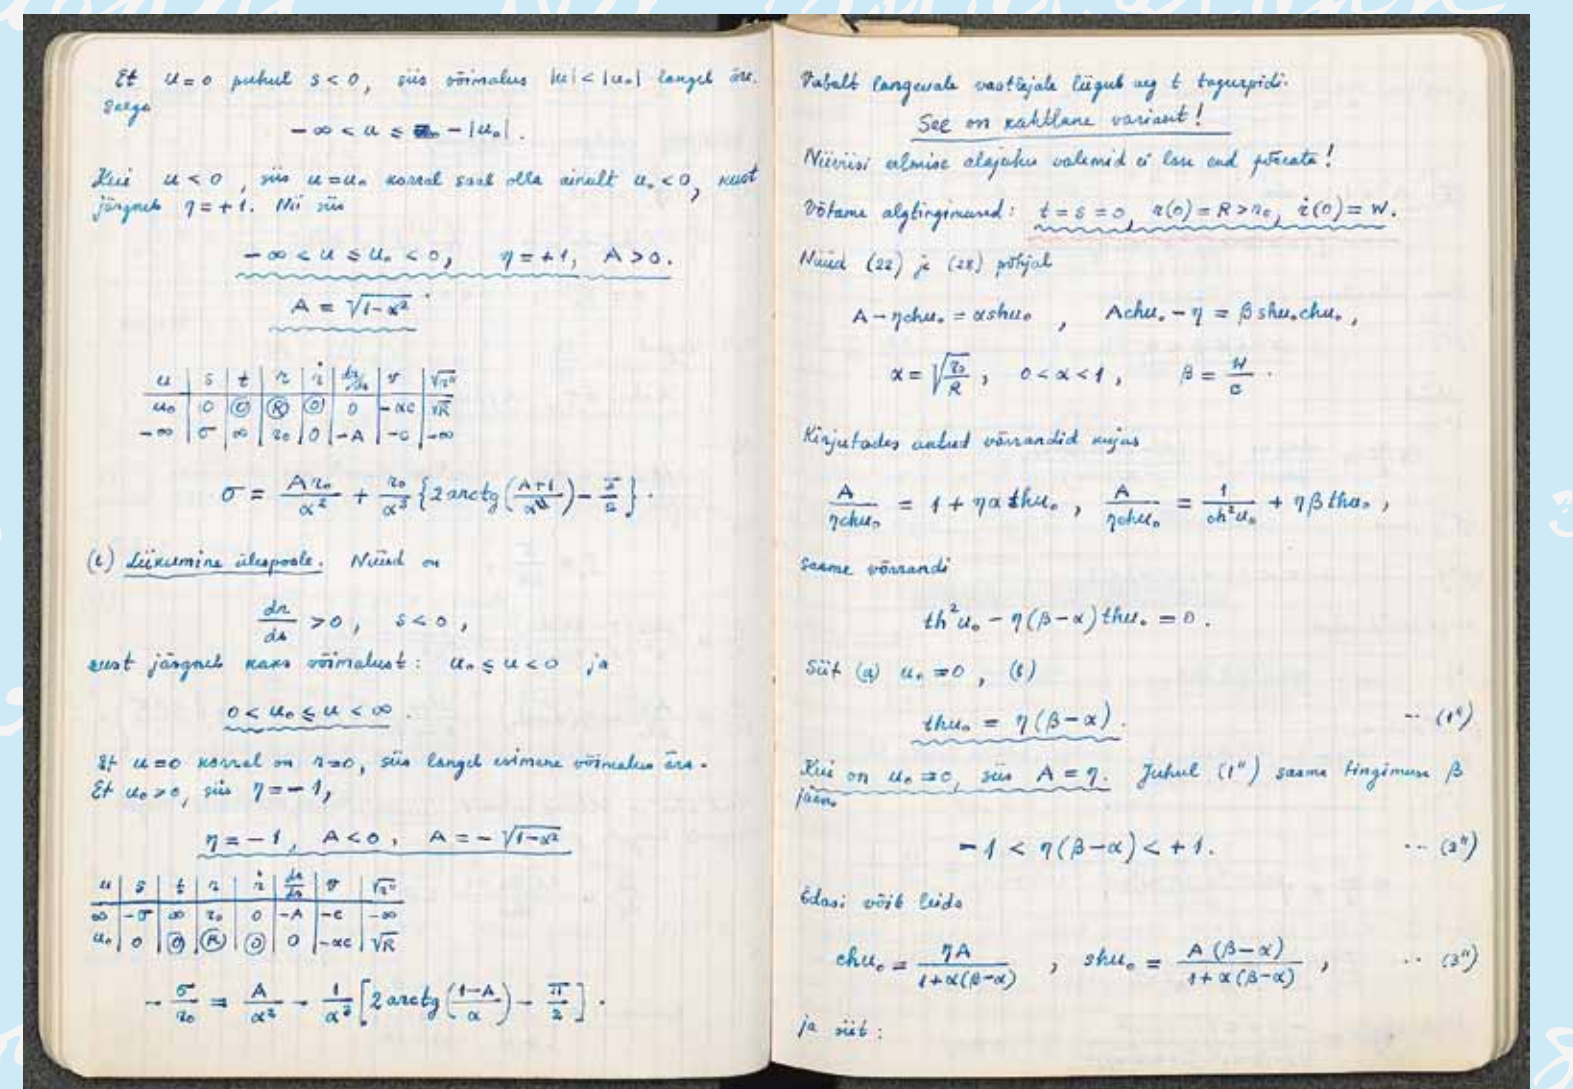 Et u=0 puhul s<0, siis võimalus |u|<|u₀| langeb ära.
Seega
-∞ < u ≤ -|u₀|.
Kui u<0, siis u=u₀ korral saab olla ainult u₀<0, kust
järgneb η=+1. Nii siis
-∞ < u ≤ u₀ < 0, η=+1, A>0.
A = √(1-α²)
u | s | t | r | ṙ | dr/ds | v | √r"
u₀ | 0 | 0 | R | 0 | 0 | -αc | √R
-∞ | σ | ∞ | r₀ | 0 | -A | -c | -∞
σ = Ar₀/α² + r₀/α³ {2 arctg((A+1)/α) - π/2}.
(b) Liikumine ülespoole. Nüüd on
dr/ds > 0, s<0,
kust järgneb kaks võimalust: u₀ ≤ u < 0 ja
0 < u₀ ≤ u < ∞.
Et u=0 korral on r=0, siis langeb esimene võimalus ära.
Et u₀>0, siis η=-1,
η=-1, A<0, A = -√(1-α²)
u | s | t | r | ṙ | dr/ds | v | √r"
∞ | -σ | ∞ | r₀ | 0 | -A | -c | -∞
u₀ | 0 | 0 | R | 0 | 0 | -αc | √R
- σ/r₀ = A/α² - 1/α³ [2 arctg((1-A)/α) - π/2].
Vabalt langevale vaatlejale liigub aeg t tagurpidi.
See on kahtlane variant!
Niiviisi eelmise alajaotuse valemid ei lase end pöörata!
Võtame algtingimused: t=s=0, r(0)=R>r₀, ṙ(0)=W.
Nüüd (22) ja (28) põhjal
A - ηchu₀ = αshu₀, Achu₀ - η = βshu₀chu₀,
α = √(r₀/R), 0<α<1, β = W/c.
Kirjutades antud võrrandid kujus
A/ηchu₀ = 1 + ηαthu₀, A/ηchu₀ = 1/ch²u₀ + ηβthu₀,
saame võrrandi
th²u₀ - η(β-α)thu₀ = 0.
Siit (a) u₀=0, (b)
thu₀ = η(β-α). -- (1")
Kui on u₀=0, siis A=η. Juhul (1") saame tingimuse β
jaoks
-1 < η(β-α) < +1. -- (2")
Edasi võib leida
chu₀ = ηA/(1+α(β-α)), shu₀ = A(β-α)/(1+α(β-α)), -- (3")
ja siit: